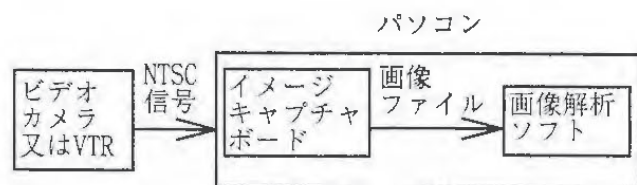 パソコン
ビデオ
カメラ
又はVTR
NTSC
信号
イメージ
キャプチャ
ボード
画像
ファイル
画像解析
ソフト